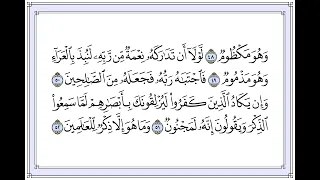 وَهُوَ مَكْظُومٌ ٤٨ لَّوْلَآ أَن تَدَٰرَكَهُۥ نِعْمَةٌ مِّن رَّبِّهِۦ لَنُبِذَ بِٱلْعَرَآءِ
وَهُوَ مَذْمُومٌ ٤٩ فَٱجْتَبَٰهُ رَبُّهُۥ فَجَعَلَهُۥ مِنَ ٱلصَّٰلِحِينَ ٥٠
وَإِن يَكَادُ ٱلَّذِينَ كَفَرُوا۟ لَيُزْلِقُونَكَ بِأَبْصَٰرِهِمْ لَمَّا سَمِعُوا۟
ٱلذِّكْرَ وَيَقُولُونَ إِنَّهُۥ لَمَجْنُونٌ ٥١ وَمَا هُوَ إِلَّا ذِكْرٌ لِّلْعَٰلَمِينَ ٥٢